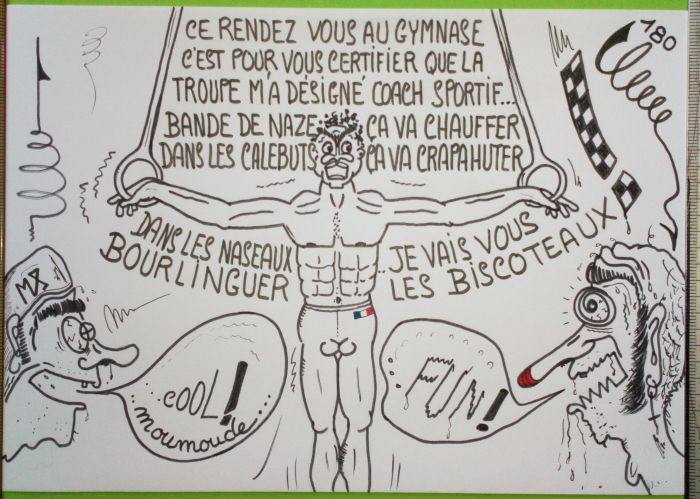 CE RENDEZ VOUS AU GYMNASE
C'EST POUR VOUS CERTIFIER QUE LA
TROUPE M'A DÉSIGNÉ COACH SPORTIF...
BANDE DE NAZE ÇA VA CHAUFFER
DANS LES CALEBUTS ÇA VA CRAPAHUTER
DANS LES NASEAUX ... JE VAIS VOUS
BOURLINGUER LES BISCOTEAUX
180
MX
COOL!
...moumoude...
FUN!